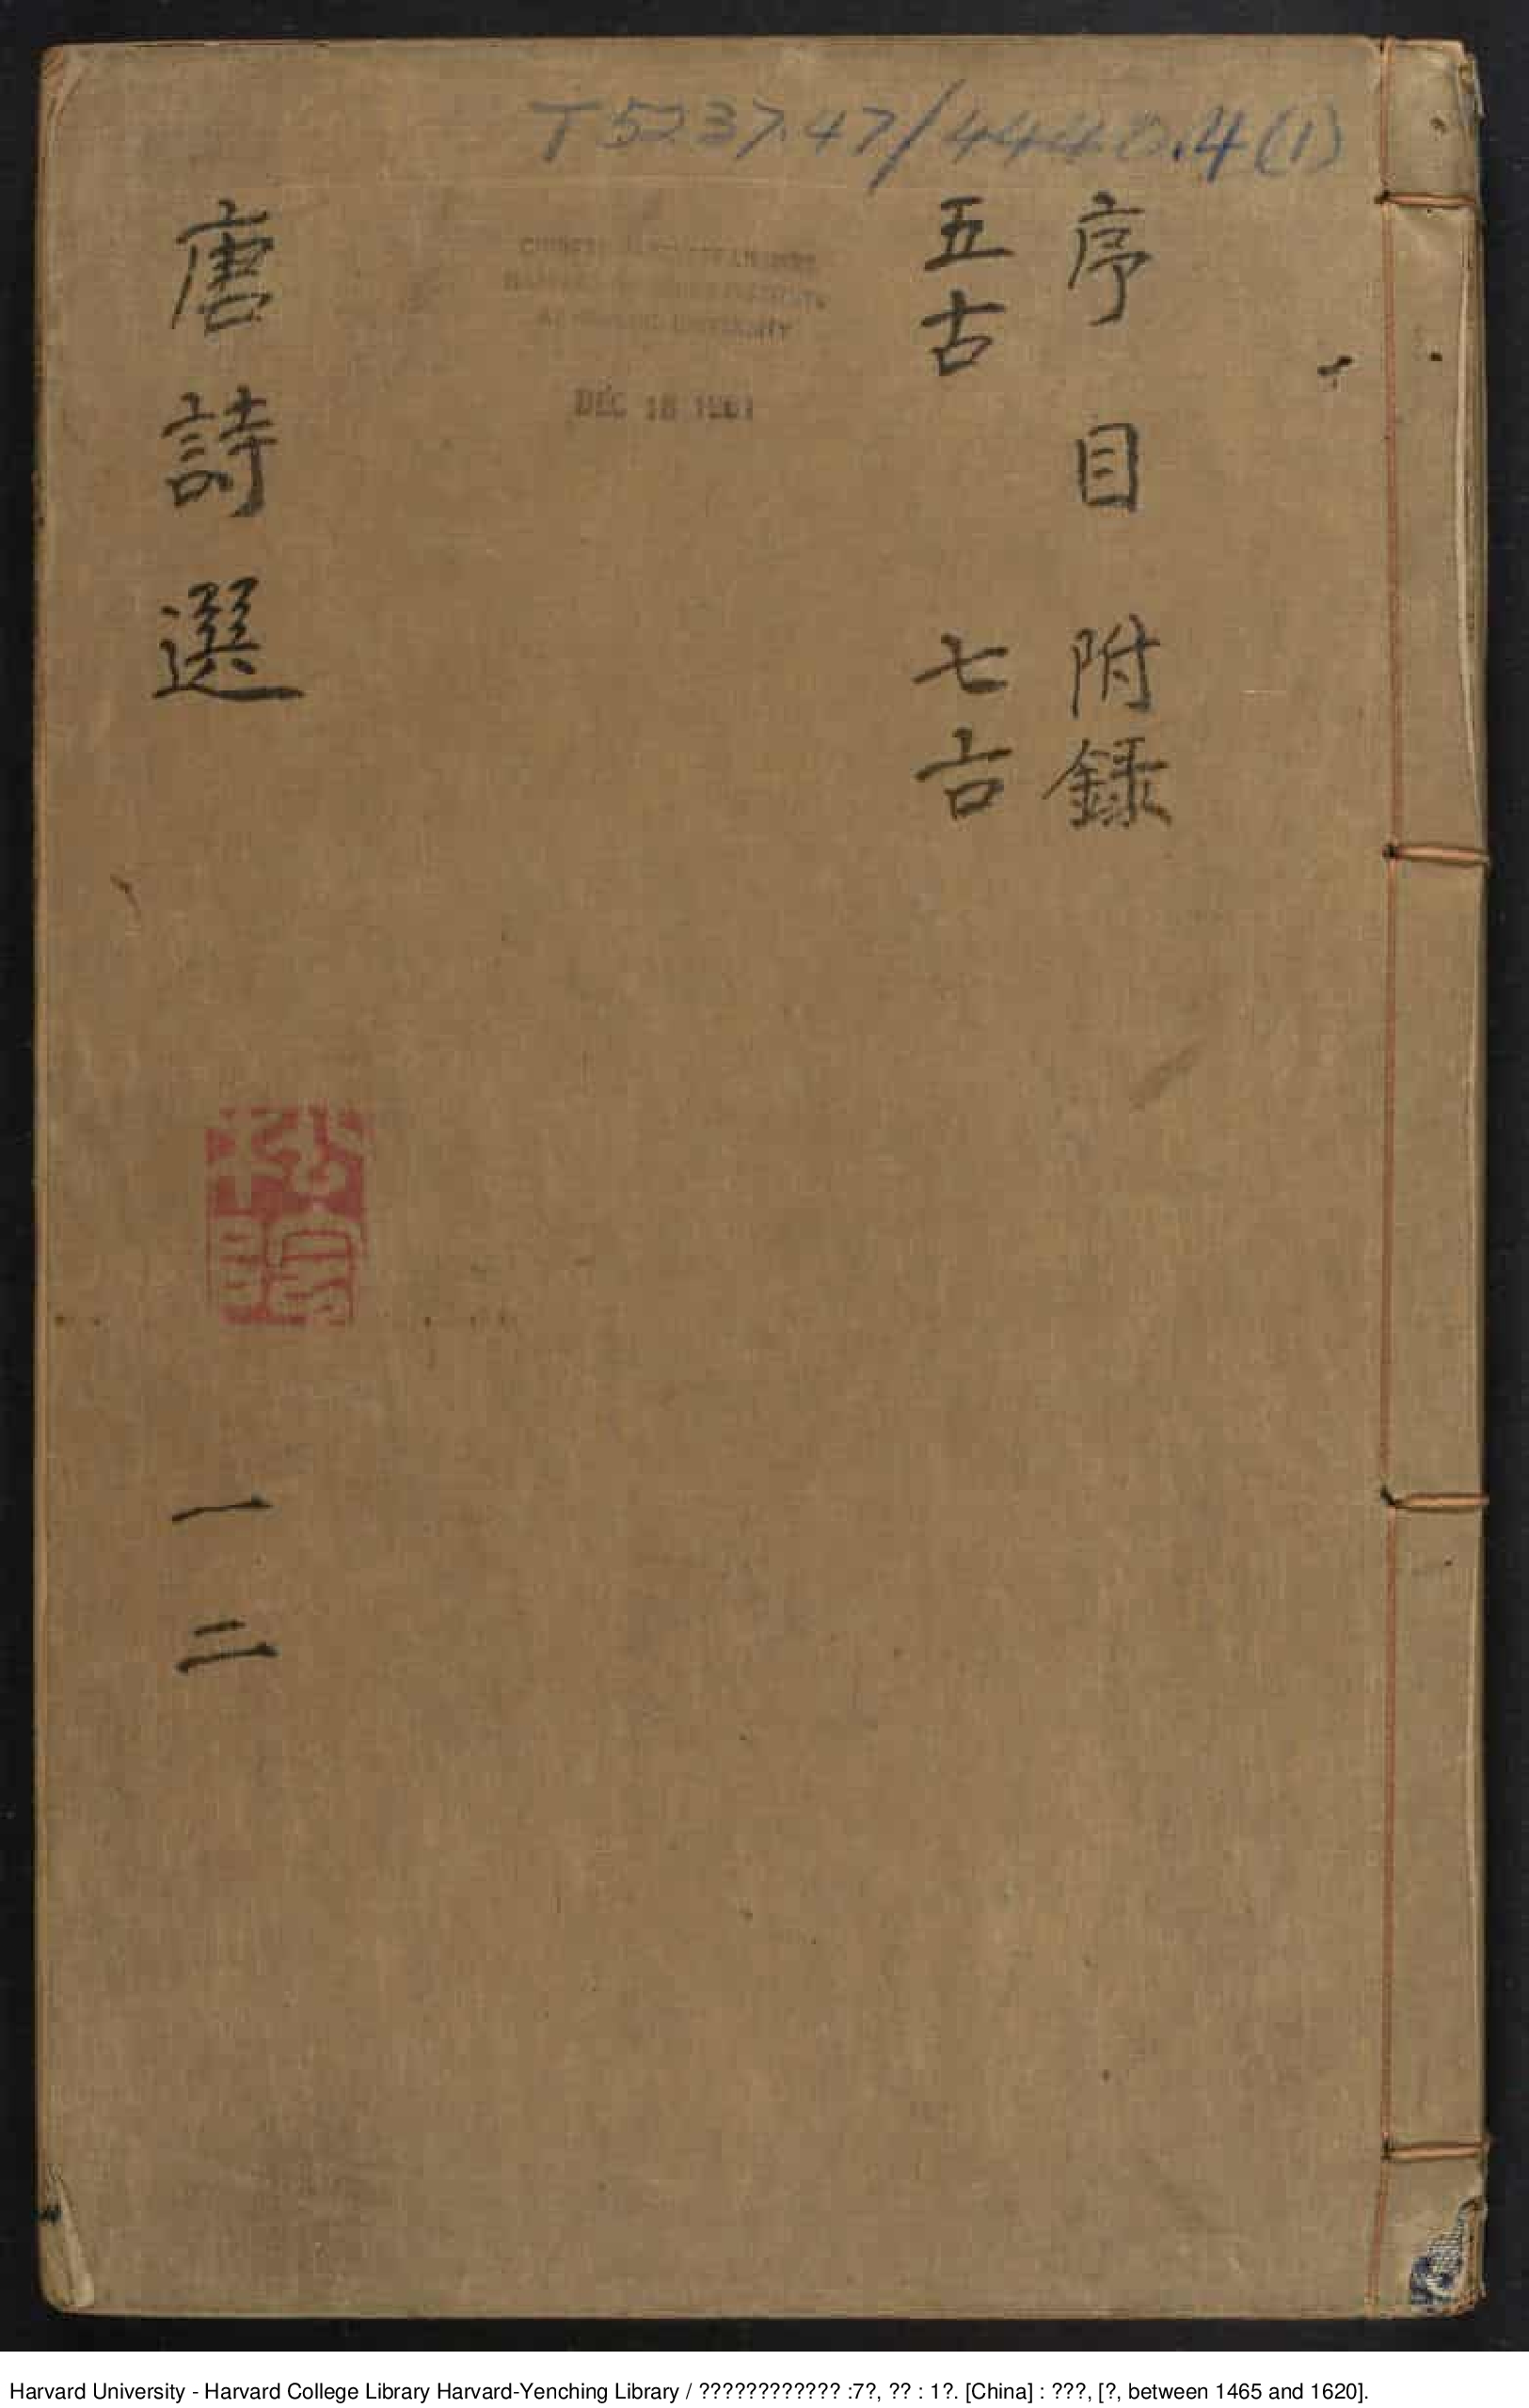 T 5237.47/4440.4(1)
序目 附錄
五古 七古
CHINESE-JAPANESE LIBRARY
HARVARD-YENCHING INSTITUTE
AT HARVARD UNIVERSITY
DEC 18 1961
唐詩選 一二
Harvard University - Harvard College Library Harvard-Yenching Library / ???????????? :7?, ?? : 1?. [China] : ???, [?, between 1465 and 1620].